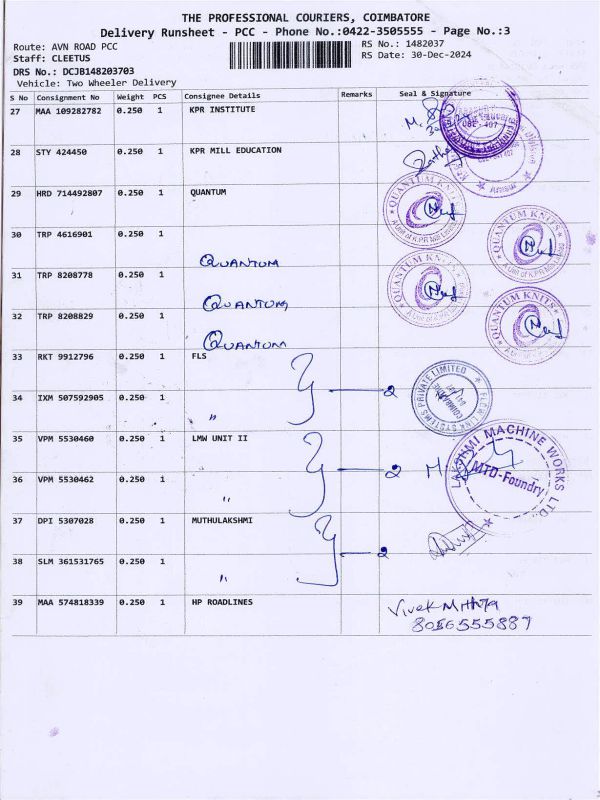 THE PROFESSIONAL COURIERS, COIMBATORE
Delivery Runsheet - PCC - Phone No.:0422-3505555 - Page No.:3
Route: AVN ROAD PCC RS No.: 1482037
Staff: CLEETUS RS Date: 30-Dec-2024
DRS No.: DCJB148203703
Vehicle: Two Wheeler Delivery
S No Consignment No Weight PCS Consignee Details Remarks Seal & Signature
27 MAA 109282782 0.250 1 KPR INSTITUTE
28 STY 424450 0.250 1 KPR MILL EDUCATION
29 HRD 714492807 0.250 1 QUANTUM
QUANTUM KNITS
A Unit of K.P.R Mill Limited
30 TRP 4616901 0.250 1
QUANTUM
QUANTUM KNITS
A Unit of K.P.R Mill Limited
31 TRP 8208778 0.250 1
QUANTUM
QUANTUM KNITS
32 TRP 8208829 0.250 1
QUANTUM
QUANTUM KNITS
33 RKT 9912796 0.250 1 FLS
2
FLOW LINK SYSTEMS PRIVATE LIMITED
COIMBATORE
34 IXM 507592905 0.250 1 "
35 VPM 5530460 0.250 1 LMW UNIT II
2
LAKSHMI MACHINE WORKS LTD.
MTD-Foundry
36 VPM 5530462 0.250 1 "
37 DPI 5307028 0.250 1 MUTHULAKSHMI
2
38 SLM 361531765 0.250 1 "
39 MAA 574818339 0.250 1 HP ROADLINES
Vivek